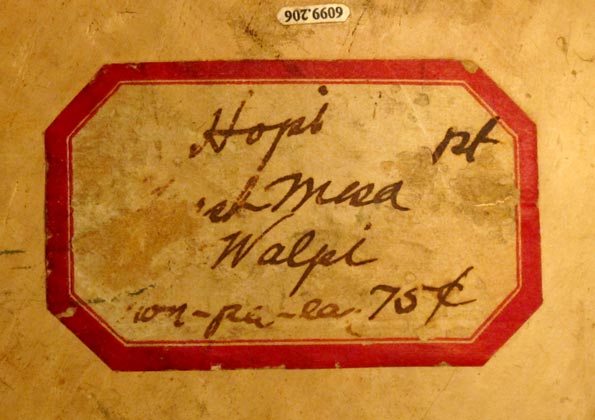 6099.206
Hopi pt
st Mesa
Walpi
on-pa-ea 75¢